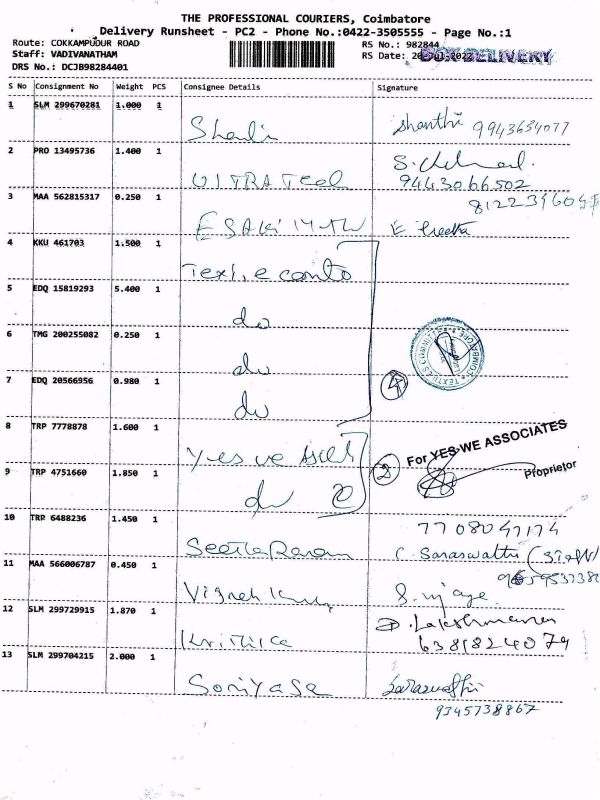 THE PROFESSIONAL COURIERS, Coimbatore
Delivery Runsheet - PC2 - Phone No.:0422-3505555 - Page No.:1
Route: COKKAMPUDUR ROAD
RS No.: 982844
Staff: VADIVANATHAM
RS Date: 20-Jul-2022
DELIVERY
DRS No.: DCJB98284401
S No Consignment No Weight PCS Consignee Details Signature
1 SLM 299670281 1.000 1
Shanthi 9943634077
2 PRO 13495736 1.400 1
ULTRA Tech
9443066502
3 MAA 562815317 0.250 1
E Preetha
4 KKU 461703 1.500 1
5 EDQ 15819293 5.400 1
do
6 TMG 200255082 0.250 1
do
TEXTILES COMMITTEE COIMBATORE
7 EDQ 20566956 0.980 1
do
4
8 TRP 7778878 1.600 1
Yes we
2
For YES WE ASSOCIATES
Proprietor
9 TRP 4751660 1.850 1
do
10 TRP 6488236 1.450 1
7708047174
Seetha Raman C. Saraswathi
11 MAA 566006787 0.450 1
12 SLM 299729915 1.870 1
D. Lakshmanan
Krithika 6381824079
13 SLM 299704215 2.000 1
Saraswathi
9345738867